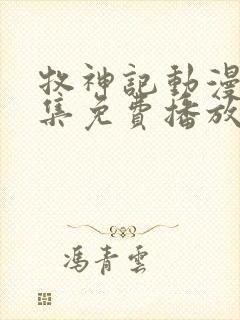 牧神記動漫
集免費播放
馮青雲